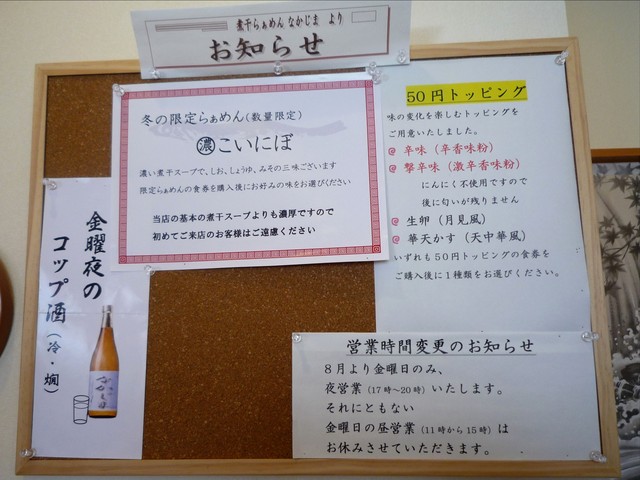 煮干らぁめん なかじま より
お知らせ
冬の限定らぁめん(数量限定)
濃 こいにぼ
濃い煮干スープで、しお、しょうゆ、みその三味ございます
限定らぁめんの食券を購入後にお好みの味をお選びください
当店の基本の煮干スープよりも濃厚ですので
初めてご来店のお客様はご遠慮ください
50円トッピング
味の変化を楽しむトッピングを
ご用意いたしました。
@ 辛味(辛香味粉)
@ 撃辛味(激辛香味粉)
にんにく不使用ですので
後に匂いが残りません
@ 生卵(月見風)
@ 華天かす(天中華風)
いずれも50円トッピングの食券を
ご購入後に1種類をお選びください。
金曜夜の
コップ酒(冷・燗)
営業時間変更のお知らせ
8月より金曜日のみ、
夜営業(17時~20時)いたします。
それにともない
金曜日の昼営業(11時から15時)は
お休みさせていただきます。